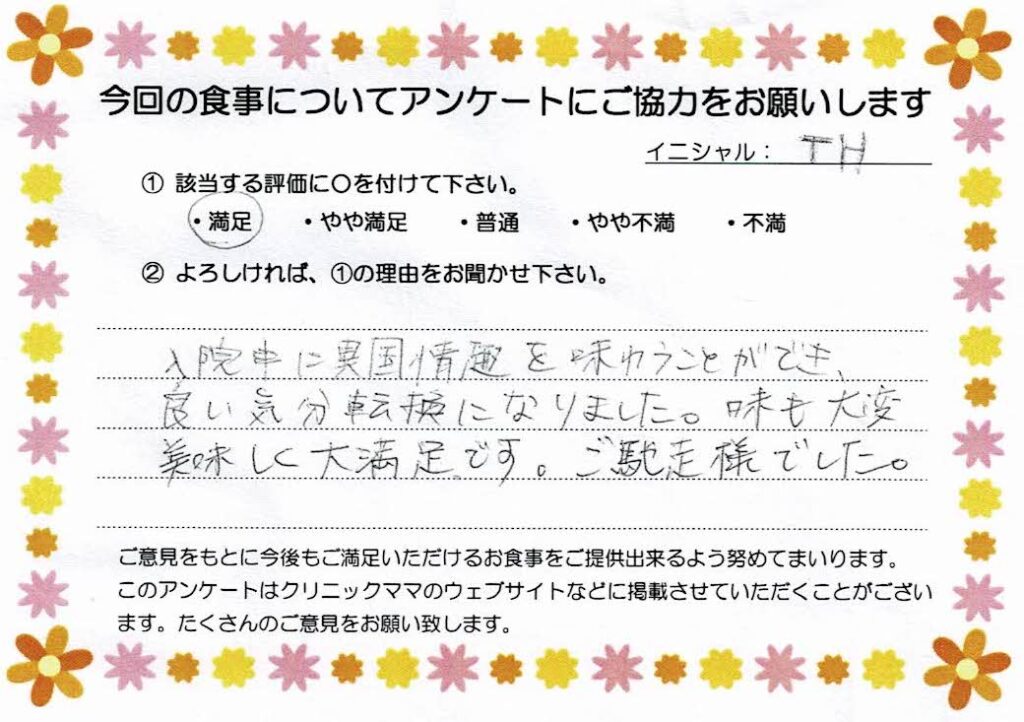 今回の食事についてアンケートにご協力をお願いします
イニシャル： TH
① 該当する評価に〇を付けて下さい。
・満足 ・やや満足 ・普通 ・やや不満 ・不満
② よろしければ、①の理由をお聞かせ下さい。
入院中に異国情趣を味わうことができ、
良い気分転換になりました。味も大変
美味しく大満足です。ご馳走様でした。
ご意見をもとに今後もご満足いただけるお食事をご提供出来るよう努めてまいります。
このアンケートはクリニックママのウェブサイトなどに掲載させていただくことがござい
ます。たくさんのご意見をお願い致します。